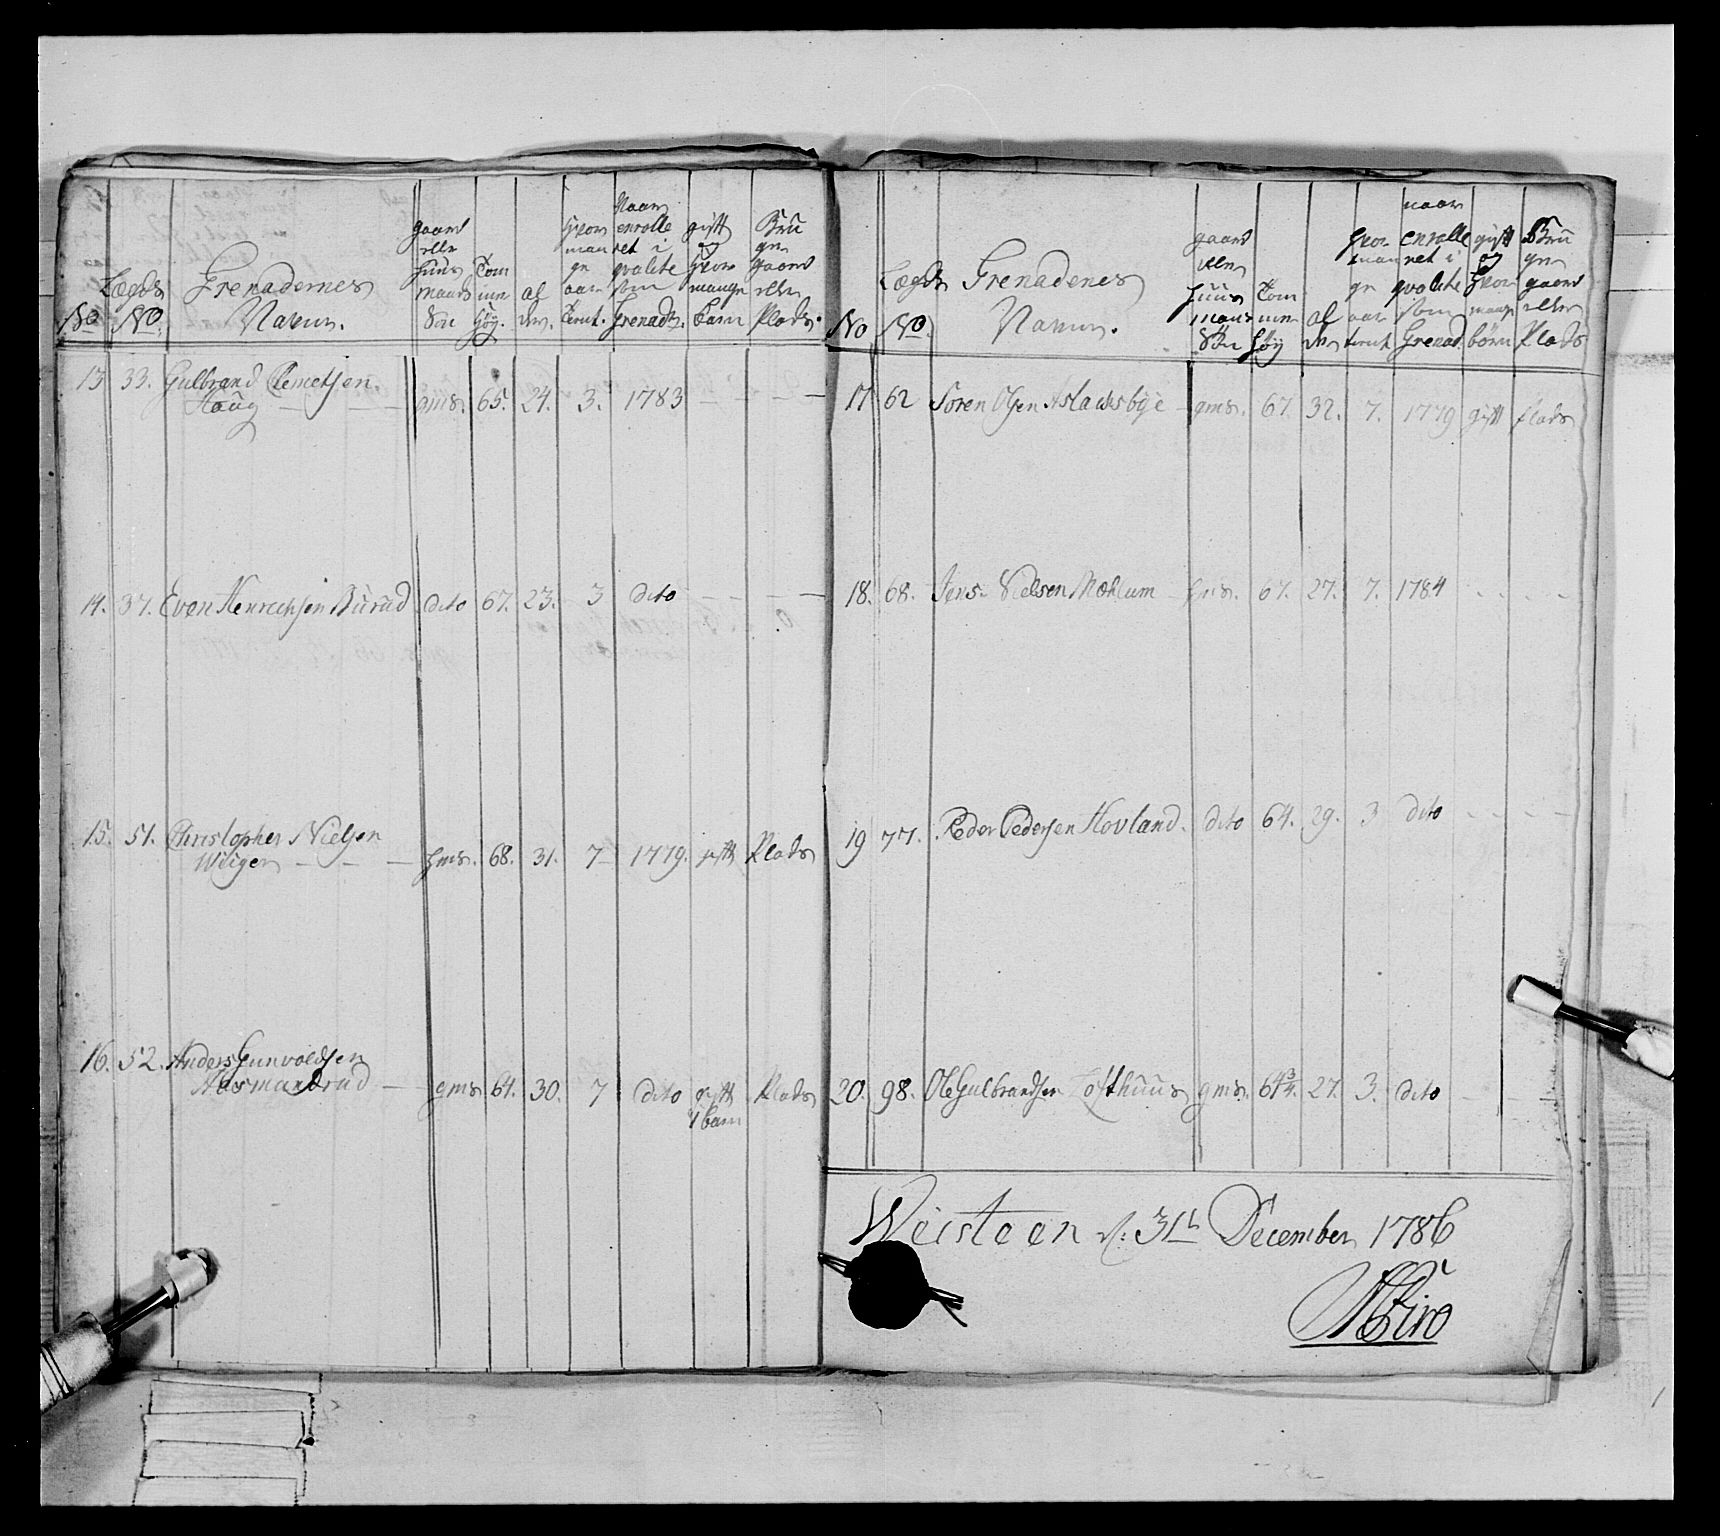 No
Lægds No
Grenadernes
Navne.
gaard
eller
huus
mands
Søn
Tom
mer
høÿ.
al
der.
hvor
man
ge
aar
tient.
Naar
enrolle
ret i
qvalite
som
Grenad.
gift
og
hvor
mange
barn
Bru
ger
gaard
eller
Plads.
13 33. Gulbrand Clemetsen
Haüg — — gms. 65. 24. 3. 1783 — — — —
14. 37. Even Henrichsen Bürüd dito 67. 23. 3 dito — — — —
15. 51. Christopher Nielsen
Wiiger — — — hms. 68. 31. 7 1779. gift Plads
16. 52. Anders Gunvoldsen
Aasmandrud — gms 64. 30. 7 dito gift Plads
1 barn
No
Lægds No.
Grenadernes
Navne.
gaard
eller
huus
mands
Søn
Tom
mer
høÿ
al
der
hvor
man
ge
aar
tient
naar
enrolle
ret i
qvalite
som
Grenad.
gift
og
hvor
mange
børn
Brü
ger
gaard
eller
Plads
17 62 Soren Olsen Aslacksbye gms. 67. 32. 7. 1779 gift plads
18. 68. Jens Nielsen Mæhlum hms. 67. 27. 7. 1784 - - - -
19 77. Peder Pedersen Hovland. dito 64. 29. 3 dito - - - -
20. 98. Ole Gulbrandsen Lofthuus gms. 64¾. 27. 3. dito — — —
Weisteen d: 31t December 1786